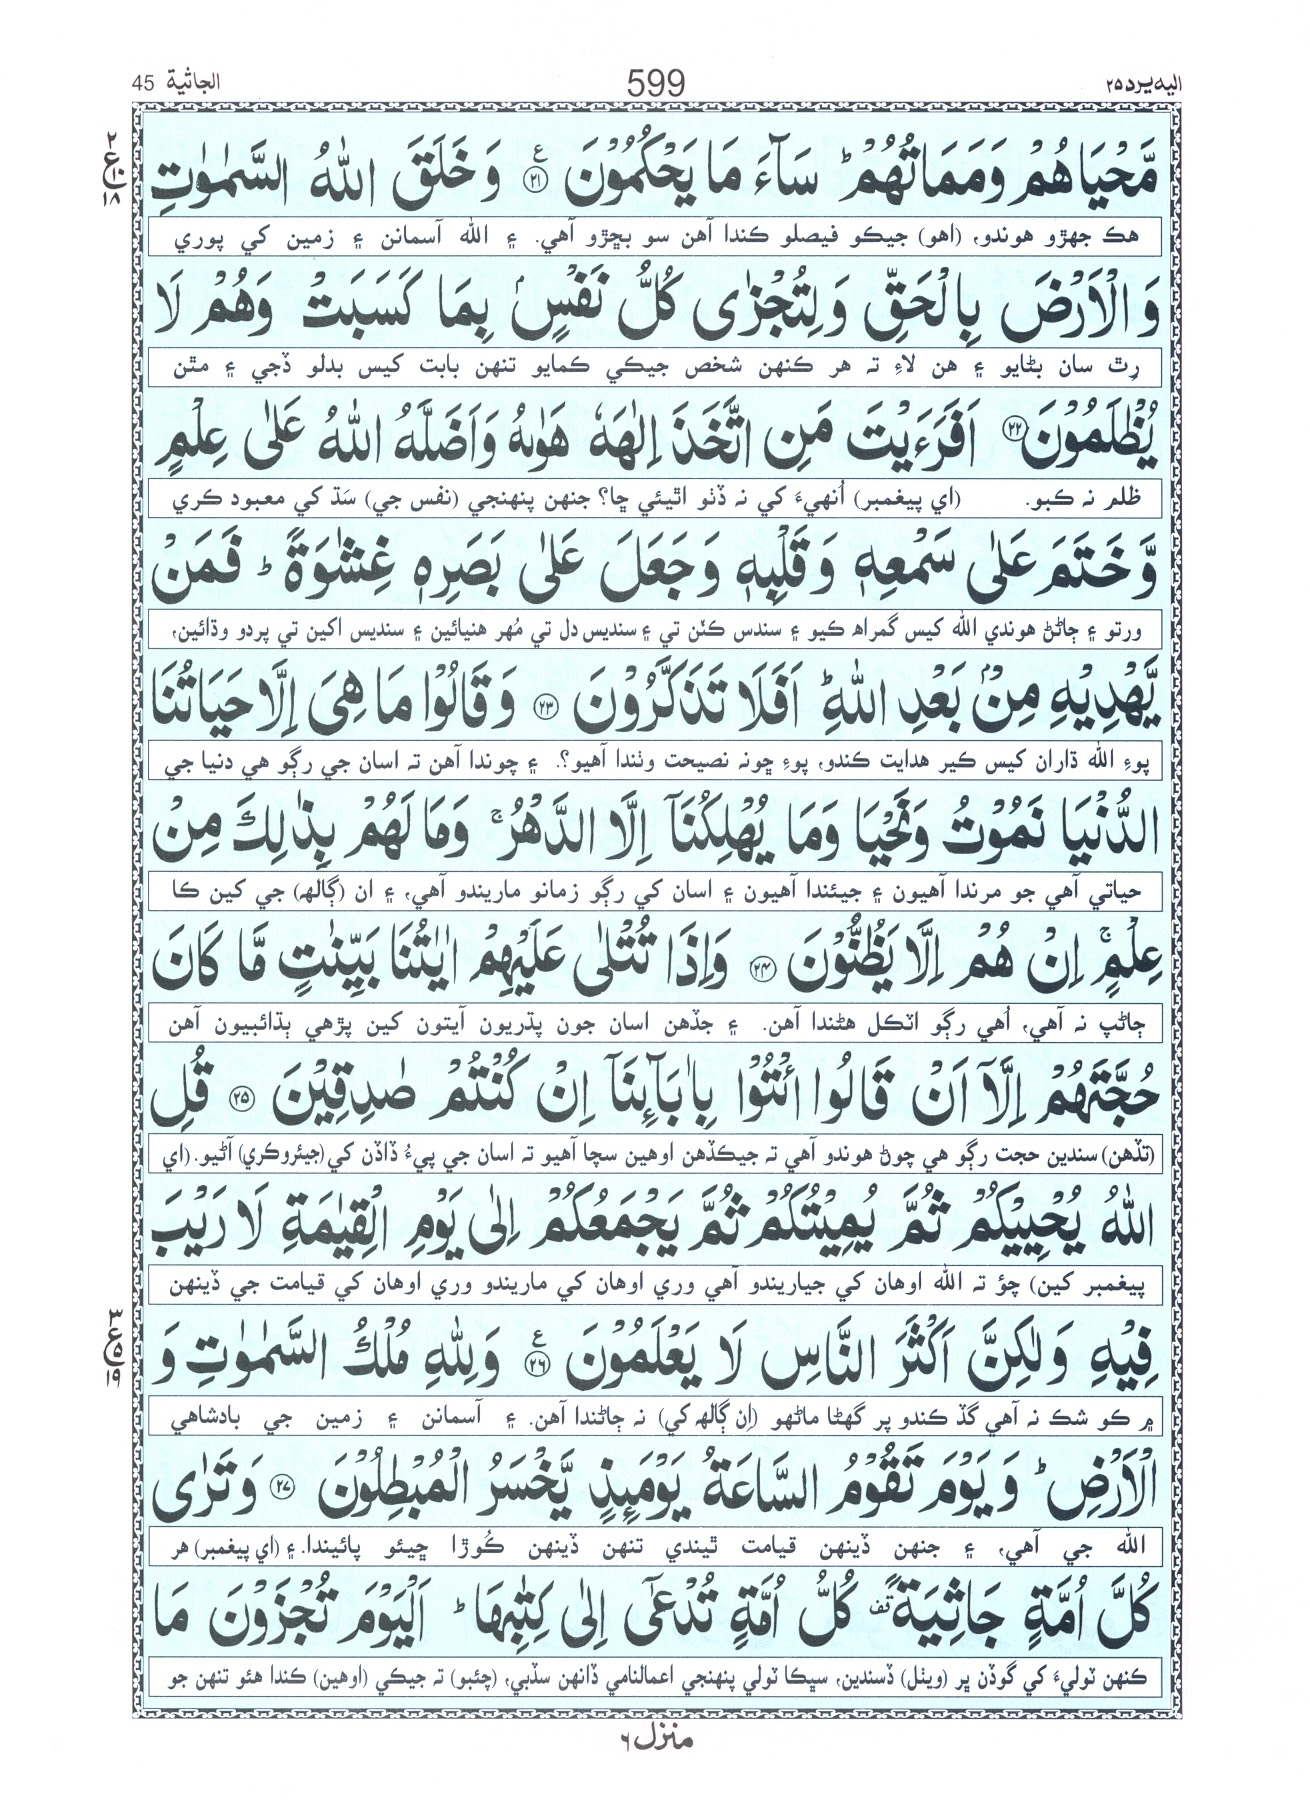 اليه يرد ٢٥ 599 الجاثية 45
مَّحْيَاهُمْ وَمَمَاتُهُمْ ؕ سَآءَ مَا يَحْكُمُوْنَ ﴿٢١﴾ ع وَخَلَقَ اللّٰهُ السَّمٰوٰتِ
٢ ع ١٠ ١٨
هڪ جهڙو هوندو، (اهو) جيڪو فيصلو ڪندا آهن سو بڇڙو آهي. ۽ الله آسمانن ۽ زمين کي پوري
وَالْاَرْضَ بِالْحَقِّ وَلِتُجْزٰى كُلُّ نَفْسٍۭ بِمَا كَسَبَتْ وَهُمْ لَا
رِٿ سان بڻايو ۽ هن لاءِ ته هر ڪنهن شخص جيڪي ڪمايو تنهن بابت کيس بدلو ڏجي ۽ مٿن
يُظْلَمُوْنَ ﴿٢٢﴾ اَفَرَءَيْتَ مَنِ اتَّخَذَ اِلٰهَهٗ هَوٰىهُ وَاَضَلَّهُ اللّٰهُ عَلٰى عِلْمٍ
ظلم نہ ڪبو. (اي پيغمبر) اُنهيءَ کي نہ ڏٺو اٿيئي ڇا؟ جنهن پنهنجي (نفس جي) سَڌ کي معبود ڪري
وَّخَتَمَ عَلٰى سَمْعِهٖ وَقَلْبِهٖ وَجَعَلَ عَلٰى بَصَرِهٖ غِشٰوَةً ؕ فَمَنْ
ورتو ۽ ڄاڻڻ هوندي الله کيس گمراھ ڪيو ۽ سندس ڪنن تي ۽ سنديس دل تي مُهر هنيائين ۽ سنديس اکين تي پردو وڌائين،
يَّهْدِيْهِ مِنْۢ بَعْدِ اللّٰهِ ؕ اَفَلَا تَذَكَّرُوْنَ ﴿٢٣﴾ وَقَالُوْا مَا هِىَ اِلَّا حَيَاتُنَا
پوءِ الله ڌاران کيس ڪير هدايت ڪندو، پوءِ ڇونہ نصيحت وٺندا آهيو؟. ۽ چوندا آهن ته اسان جي رڳو هي دنيا جي
الدُّنْيَا نَمُوْتُ وَنَحْيَا وَمَا يُهْلِكُنَاۤ اِلَّا الدَّهْرُ ۚ وَمَا لَهُمْ بِذٰلِكَ مِنْ
حياتي آهي جو مرندا آهيون ۽ جيئندا آهيون ۽ اسان کي رڳو زمانو ماريندو آهي، ۽ ان (ڳالھ) جي کين ڪا
عِلْمٍ ۚ اِنْ هُمْ اِلَّا يَظُنُّوْنَ ﴿٢٤﴾ وَاِذَا تُتْلٰى عَلَيْهِمْ اٰيٰتُنَا بَيِّنٰتٍ مَّا كَانَ
ڄاڻپ نہ آهي، اُهي رڳو اٽڪل هڻندا آهن. ۽ جڏهن اسان جون پڌريون آيتون کين پڙهي ٻڌائبيون آهن
حُجَّتَهُمْ اِلَّاۤ اَنْ قَالُوا ائْتُوْا بِاٰبَآئِنَاۤ اِنْ كُنْتُمْ صٰدِقِيْنَ ﴿٢٥﴾ قُلِ
(تڏهن) سندين حجت رڳو هي چوڻ هوندو آهي ته جيڪڏهن اوهين سچا آهيو ته اسان جي پيءُ ڏاڏن کي (جيئروڪري) آڻيو. (اي
اللّٰهُ يُحْيِيْكُمْ ثُمَّ يُمِيْتُكُمْ ثُمَّ يَجْمَعُكُمْ اِلٰى يَوْمِ الْقِيٰمَةِ لَا رَيْبَ
پيغمبر کين) چؤ ته الله اوهان کي جياريندو آهي وري اوهان کي ماريندو وري اوهان کي قيامت جي ڏينهن
فِيْهِ وَلٰكِنَّ اَكْثَرَ النَّاسِ لَا يَعْلَمُوْنَ ﴿٢٦﴾ ع وَلِلّٰهِ مُلْكُ السَّمٰوٰتِ وَ
٣ ع ٥ ١٩
۾ ڪو شڪ نہ آهي گڏ ڪندو پر گهڻا ماڻهو (اِن ڳالھ کي) نہ ڄاڻندا آهن. ۽ آسمانن ۽ زمين جي بادشاهي
الْاَرْضِ ؕ وَيَوْمَ تَقُوْمُ السَّاعَةُ يَوْمَئِذٍ يَّخْسَرُ الْمُبْطِلُوْنَ ﴿٢٧﴾ وَتَرٰى
الله جي آهي، ۽ جنهن ڏينهن قيامت ٿيندي تنهن ڏينهن ڪُوڙا ڇيئو پائيندا. ۽ (اي پيغمبر) هر
كُلَّ اُمَّةٍ جَاثِيَةً ۟ قف كُلُّ اُمَّةٍ تُدْعٰۤى اِلٰى كِتٰبِهَا ؕ اَلْيَوْمَ تُجْزَوْنَ مَا
ڪنهن ٽوليءَ کي گوڏن ڀر (ويٺل) ڏسندين، سڀڪا ٽولي پنهنجي اعمالنامي ڏانهن سڏبي، (چئبو) ته جيڪي (اوهين) ڪندا هئو تنهن جو
منزل ٦